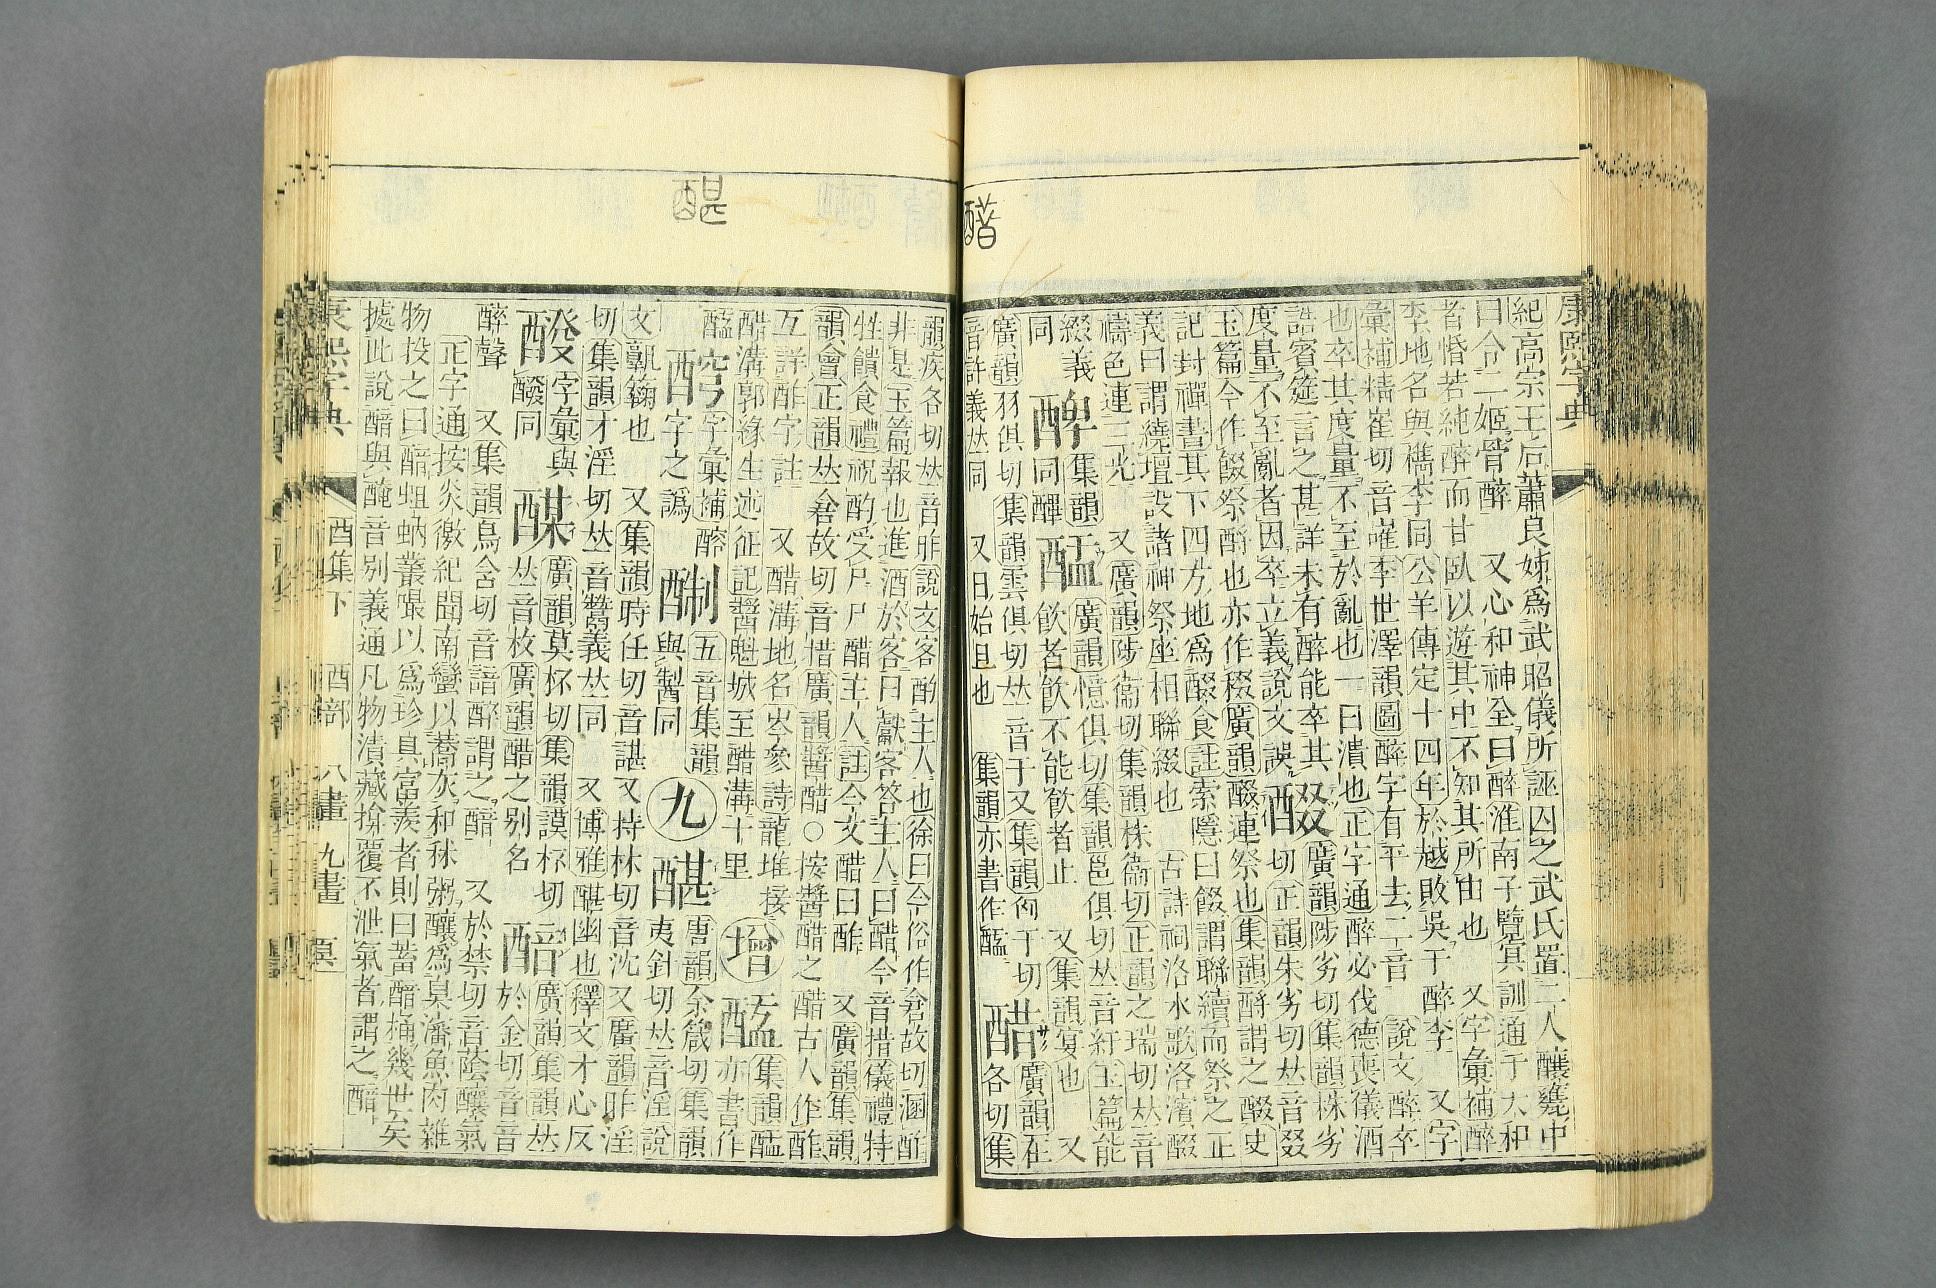 康熙字典
醋
紀高宗王后蕭良娣爲武昭儀所誣囚之武氏置二人釀甕中
曰令二嫗骨醉 又心和神全曰醉淮南子覽冥訓通于太和
者惛若純醉而甘臥以遊其中不知其所由也 又字彙補醉
李地名與檇李同公羊傳定十四年於越敗吳于醉李 又字
彙補精崔切音嶊李世澤韻圖醉字有平去二音 說文醉卒
也卒其度量不至於亂也一曰潰也正字通醉必伐德喪儀酒
誥賓筵言之甚詳未有醉能卒其 醊 廣韻陟劣切集韻株劣
度量不至亂者因卒立義說文誤 切正韻朱劣切𠀤音畷
玉篇今作餟祭酹也亦作裰廣韻醊連祭也集韻酹謂之醊史
記封禪書其下四方地爲醊食註索隱曰餟謂聯續而祭之正
義曰謂繞壇設諸神祭座相聯綴也 古詩祠洛水歌洛濱醊
禱色連三光 又廣韻陟衞切集韻株衞切正韻之瑞切𠀤音
綴義 集韻 醧 廣韻憶俱切集韻邕俱切𠀤音紆玉篇能
同 同醳 飲者飲不能飲者止 又集韻宴也 又
廣韻羽俱切集韻雲俱切𠀤音于又集韻匈于切 醋 廣韻在
音訏義𠀤同 又日始且也 集韻亦書作醧 各切集
韻疾各切𠀤音昨說文客酌主人也徐曰今俗作倉故切溷酢
非是玉篇報也進酒於客曰獻客答主人曰醋今音措儀禮特
牲饋食禮祝酌受尸尸醋主人註今文醋曰酢 又廣韻集韻
韻會正韻𠀤倉故切音措廣韻醬醋○按醬醋之醋古人作酢
互詳酢字註 又醋溝地名岑參詩龍堆接 增 集韻醧
醋溝郭緣生述征記醬魁城至醋溝十里 亦書作
醧 字彙補 五音集韻 九 唐韻余箴切集韻
字之譌 與製同 夷針切𠀤音淫說
文 鞫也 又集韻時任切音諶又持林切音沈又廣韻昨淫
切集韻才淫切𠀤音鬵義𠀤同 又博雅 幽也釋文才心反
字彙與 䤂 廣韻莫杯切集韻謨杯切 䤃 廣韻集韻𠀤
醱同 𠀤音枚廣韻醋之別名 於金切音音
醉聲 又集韻烏含切音諳醉謂之䤃 又於禁切音蔭釀氣
正字通按炎徼紀聞南蠻以蕎灰和秫粥釀爲臭瀋魚肉雜
物投之曰䤃蛆蚋叢嘬以爲珍具富羨者則曰蓄䤃桶幾世矣
據此說䤃與醃音別義通凡物漬藏揜覆不泄氣者謂之䤃
康熙字典 酉集下 酉部 八畫 九畫